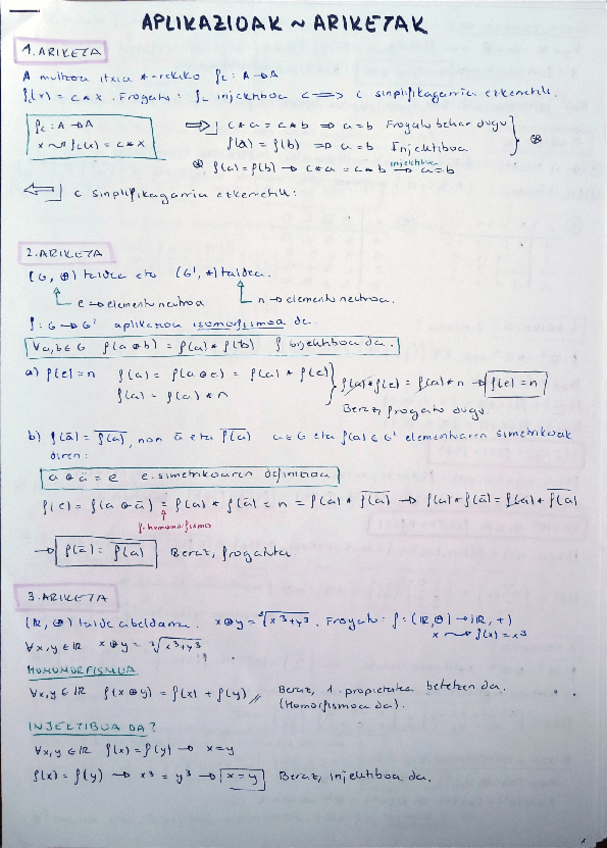 APLIKAZIOAK ~ ARIKETAK
1. ARIKETA
A multzoa itxia *-rekiko fc: A → A
f(x) = c * x. Frogatu: fc injektiboa ⟺ c sinplifikagarria ezkerretik.
fc: A → A
x ⇝ fc(x) = c * x
⇒ c * a = c * b ⇒ a = b Frogatu behar dugu
f(a) = f(b) ⇒ a = b Injektiboa
⊛ f(a) = f(b) → c * a = c * b → injektiboa a = b
⇐ c sinplifikagarria ezkerretik:
2. ARIKETA
(G, ⊕) taldea eta (G', *) taldea.
e → elementu neutroa n → elementu neutroa.
f: G → G' aplikazioa izomorfismoa da.
∀a,b ∈ G f(a ⊕ b) = f(a) * f(b) f bijektiboa da.
a) f(e) = n f(a) = f(a ⊕ e) = f(a) * f(e)
f(a) = f(a) * n
f(a) * f(e) = f(a) * n → f(e) = n
Beraz, frogatu dugu.
b) f(ā) = \overline{f(a)}, non ā eta \overline{f(a)} a ∈ G eta f(a) ∈ G' elementuaren simetrikoak
diren:
a ⊕ ā = e e. simetrikoaren definizioa
f(e) = f(a ⊕ ā) = f(a) * f(ā) = n = f(a) * \overline{f(a)} → f(a) * f(ā) = f(a) * \overline{f(a)}
f. homomorfismo
→ f(ā) = \overline{f(a)} Beraz, frogatuta.
3. ARIKETA
(ℝ, ⊕) talde abeldarra. x ⊕ y = ∛(x³+y³). Frogatu: f: (ℝ, ⊕) → (ℝ, +)
x ⇝ f(x) = x³
∀x,y ∈ ℝ x ⊕ y = ∛(x³+y³)
HOMOMORFISMOA
∀x,y ∈ ℝ f(x ⊕ y) = f(x) + f(y) // Beraz, 1. propietatea betetzen da.
(Homorfismoa da).
INJEKTIBOA DA?
∀x,y ∈ ℝ f(x) = f(y) → x = y
f(x) = f(y) → x³ = y³ → x = y Beraz, injektiboa da.